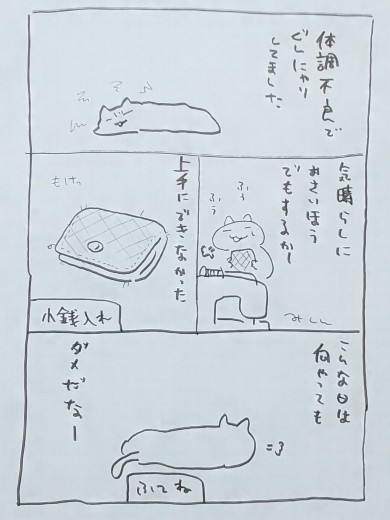 体調不良で
ぐんにゃり
してました
気晴らしに
おさいほう
でもするかー
ふぅ
ふぅ
みしん
上手にできなかった
もけっ
小銭入れ
こんな日は
何やっても
ダメだなー
ふてね